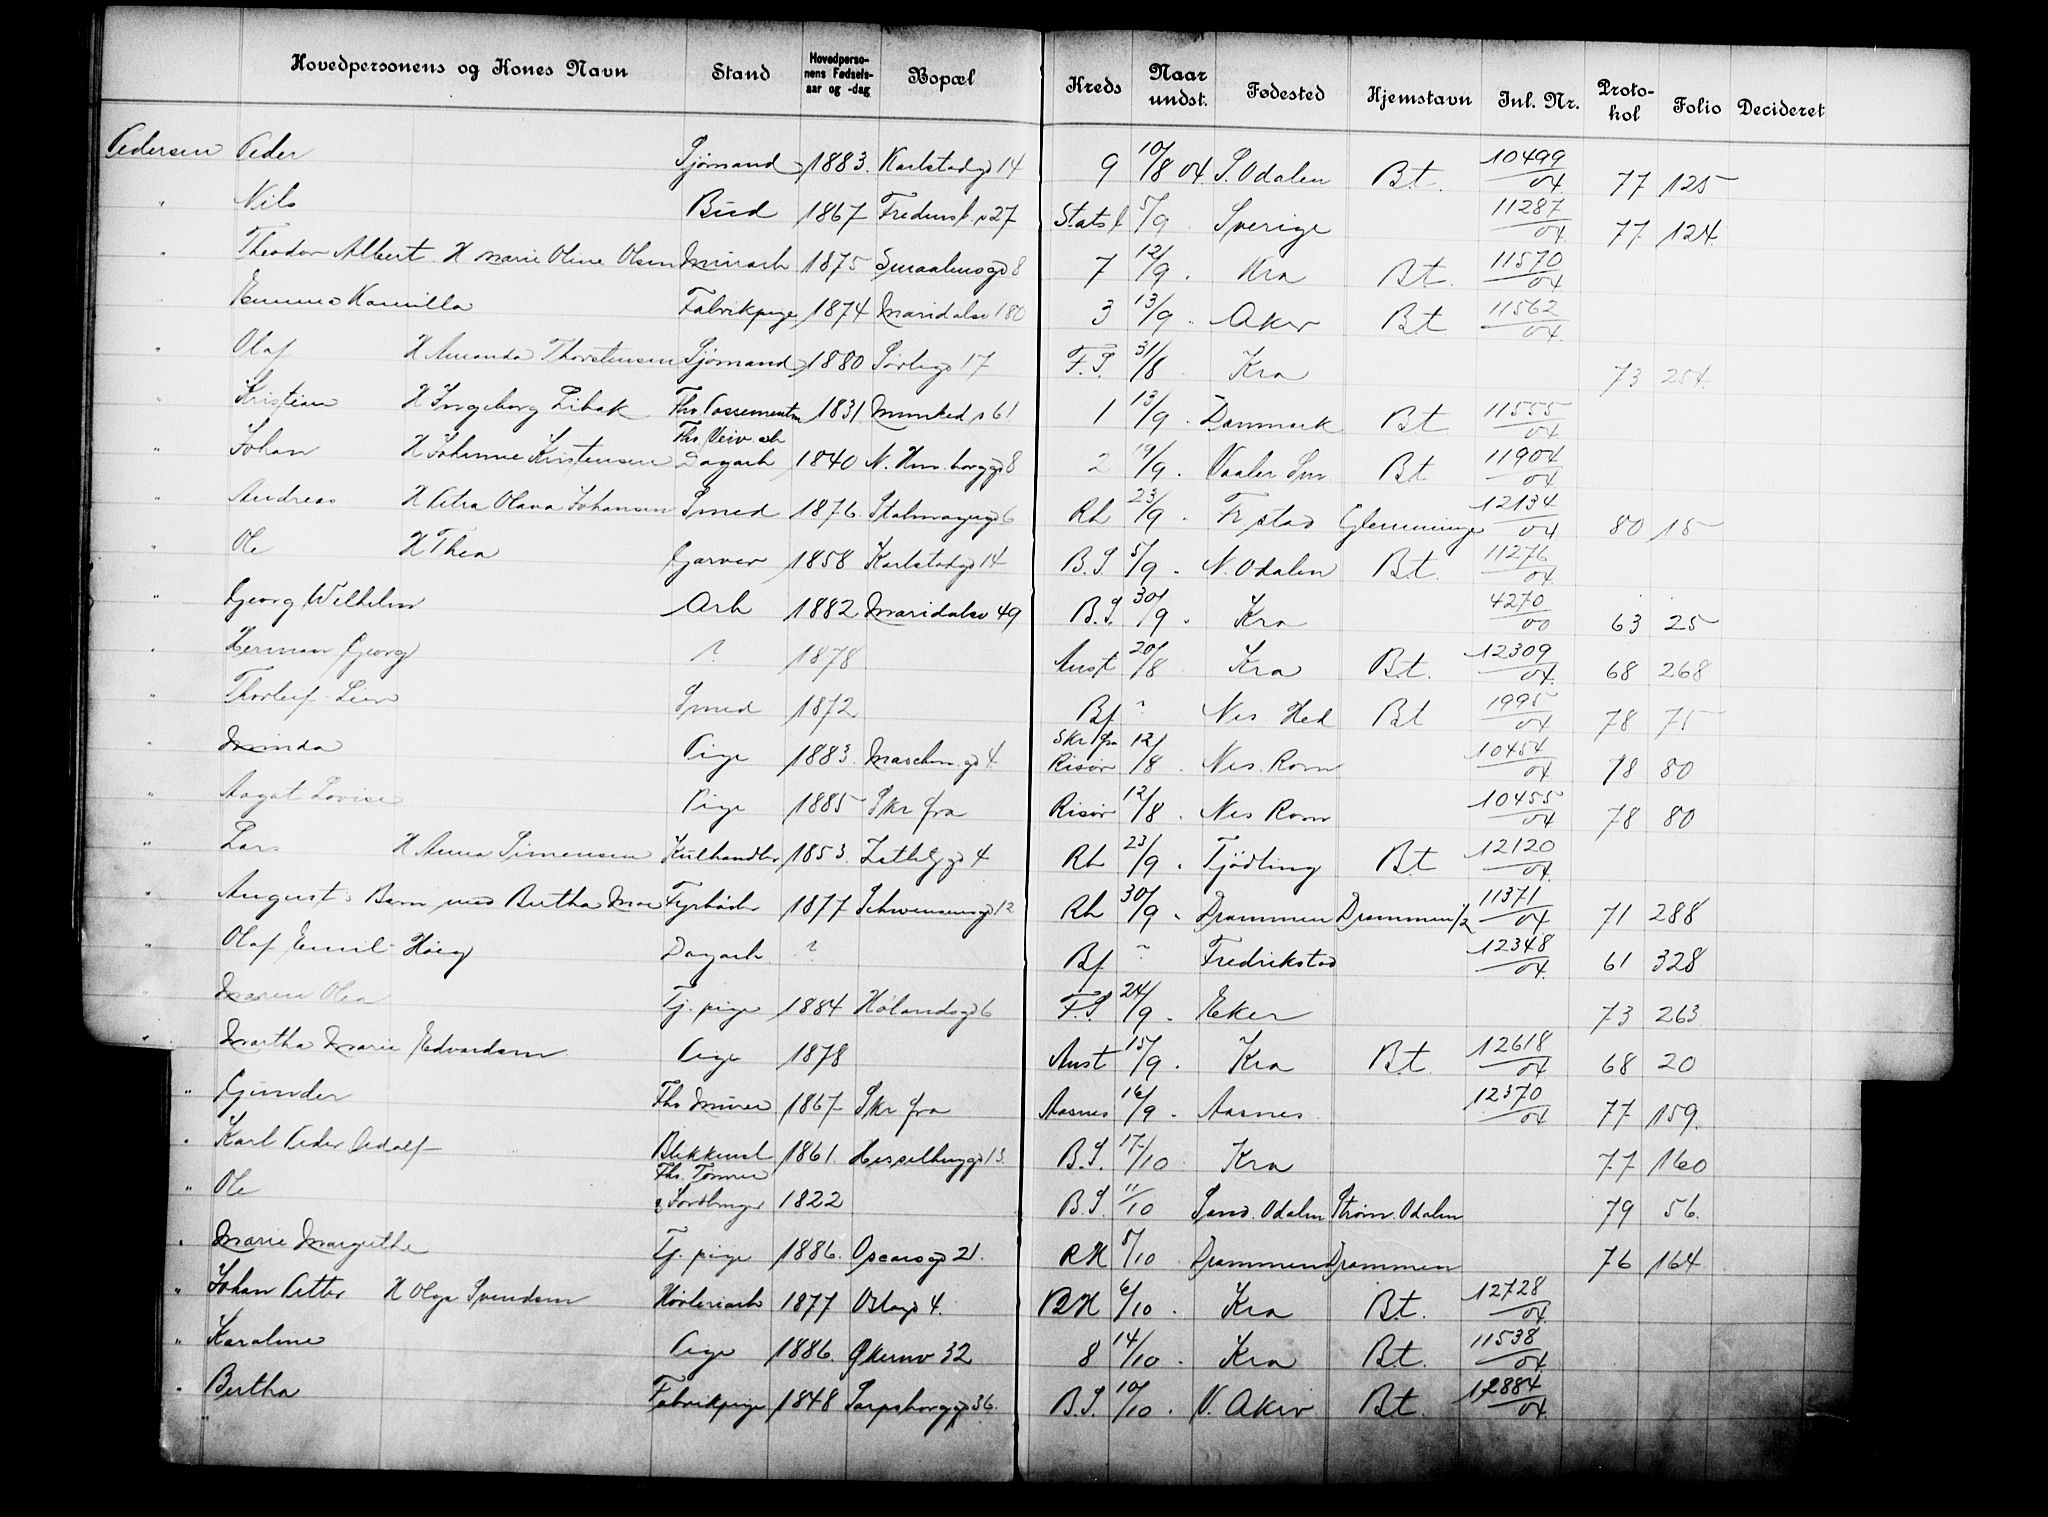 Hovedpersonens og Kones Navn Stand Hovedpersonens Fødselsaar og -dag Bopæl Kreds Naar undst. Fødested Hjemstavn Inl. Nr. Protokol Folio Decideret
Pedersen Peder Sjømand 1883. Karlstadgd 14 9 10/8 04 S. Odalen Bt. 10499/04 77 125
" Nils Bud 1867 27 Stats 5/9 Sverige 11287/04 77 124
" Theodor Albert H Marie Oline Olsen Murarb 1875 Smaalensgd 8 7 12/9 . Kra Bt. 11570/04
" Emma Kamilla Fabrikpige 1874 Maridalsv 180 3 13/9 . Aker Bt. 11562/04
" Olaf H Amanda Thorstensen Sjømand 1880 Sørligd 17 F.S. 31/8 Kra 73 254
" Kristian H Ingeborg 1831 Munked 61 1 13/9 . Danmark Bt. 11555/04
" Johan H Johanne Kristensen Fhv. Veiv. arb Dagarb 1840 N. 8 2 19/9 . Vaaler Sm Bt. 11904/04
" Andreas H Petra Olava Johansen Smed 1876. 6 Rh 23/9 . Fr stad Glemminge 12134/04 80 15
" Ole H Thea Garver 1858 Karlstadgd 14 B.S. 5/9 . N. Odalen Bt. 11276/04
" Georg Wilhelm Arb 1882 Maridalsv 49 B.S. 30/9 . Kra 4270/00 63 25
" Herman Georg ? 1878 Anst 20/8 Kra Bt. 12309/04 68 268
" Thorleif Lien Smed 1872 Bf ? Nes. Hed Bt 1995/04 78 75
" Minda Pige 1883. 4 Skr fra Risør 12/8 . Nes. Rom 10454/04 78 80
" Aagot Lovise Pige 1885 Skr fra Risør 12/8 . Nes Rom 10455/04 78 80
" Lars H Anna Simensen Kulhandler 1853. 4 Rh 23/9 . Tjødling Bt 12120/04
" August. Barn med Bertha Moe Fyrbøder 1877 Schwensensgd 12 Rh 30/9 . Drammen Drammen 1/2 11371/04 71 288
" Olaf Emil Høieg Dagarb ? Bf ? Fredrikstad 12348/04 61 328
" Maren Olea Tj. pige 1884 Hølandsgd 6 F.S 24/9 . Eker 73 263
" Martha Marie Edvardsen Pige 1878 Anst 15/9 . Kra Bt. 12618/04 68 20
" Gunder Fhv Murer 1867 Skr fra Aasnes 16/9 . Aasnes. 12370/04 77 159.
" Karl Peder Adolf 1861. Hesselberggd 13. B.S. 17/10 Kra 77 160
" Ole Fhv. Tømmer 1822 B.S. 11/10 Sand. Odalen Strøm. Odalen 79 56.
" Marie Margrethe Tj. pige 1886. Oscarsgd 21. RH 5/10 Drammen Drammen 76 164
" Johan Petter H Olga Svendsen Høvleriarb 1877 Oslogd 4. RH 6/10 . Kra Bt. 12728/04
" Karoline Pige 1886. Økernv 32 8 14/10 . Kra Bt. 11538/04
" Bertha Fabrikpige 1848 Sarpsborggd 36. B.S. 10/10 . V. Aker Bt. 12884/04